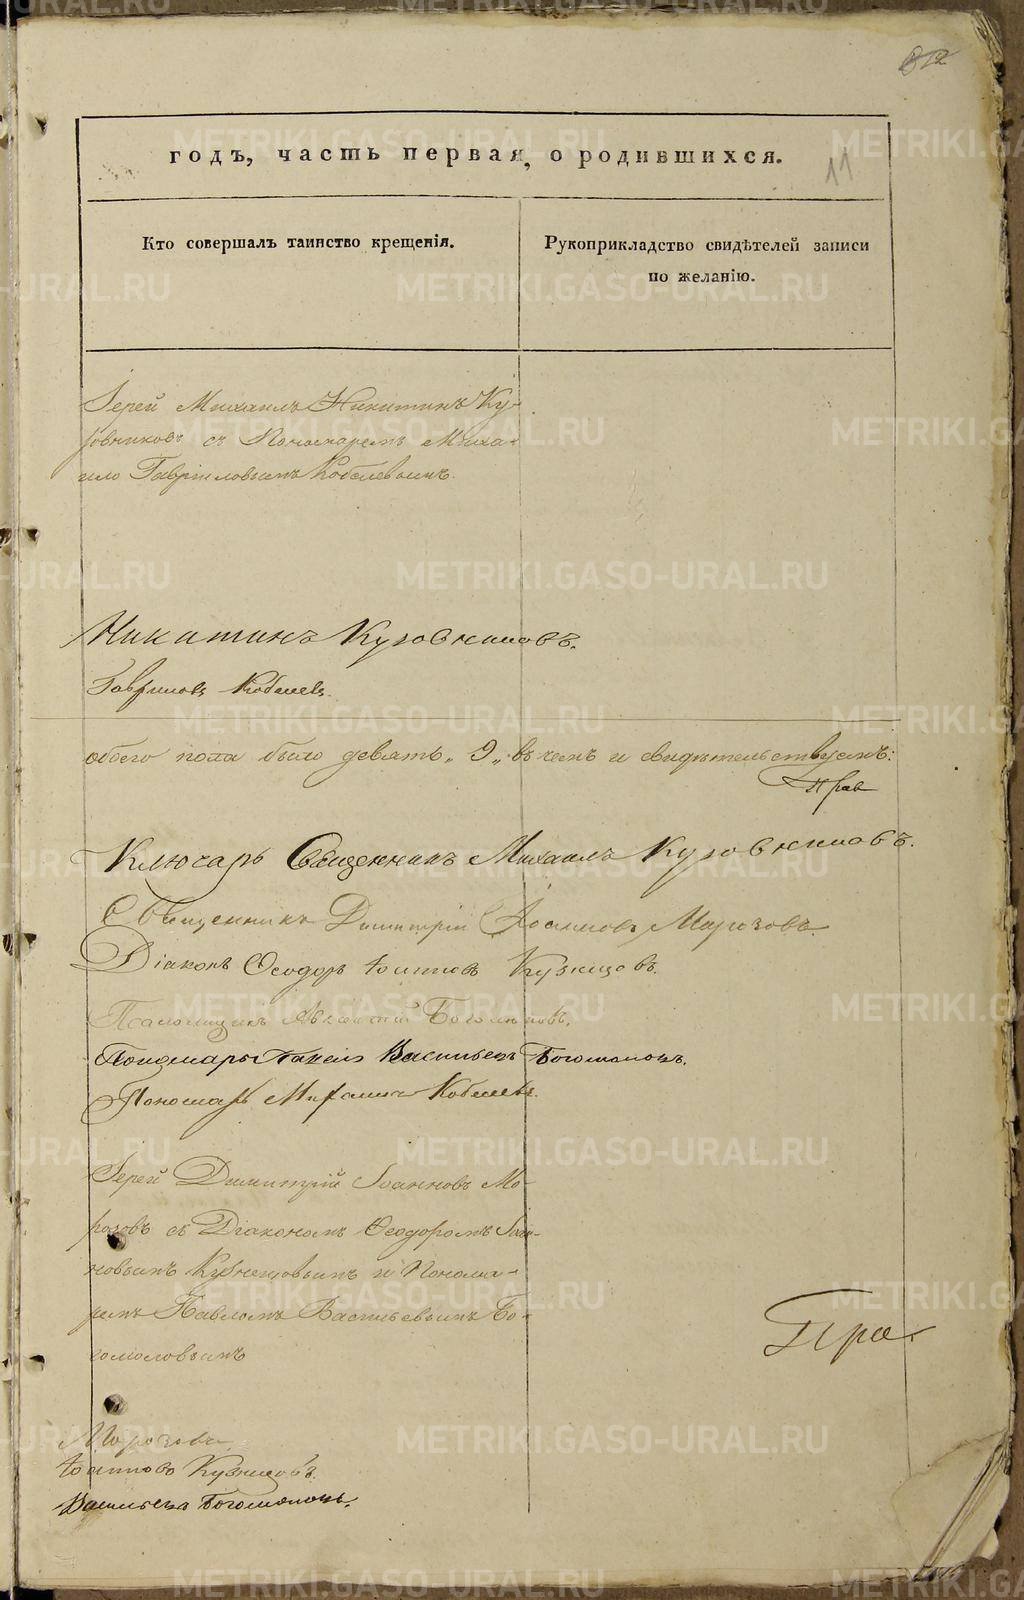 812
годъ, часть первая, о родившихся.
11
Кто совершалъ таинство крещенія.
Рукоприкладство свидѣтелей записи
по желанію.
Іерей Михаилъ Никитинъ Ку-
ровниковъ съ Пономаремъ Миха-
иломъ Гавриловымъ Кобелевымъ.
Никитинъ Куровниковъ.
Гавриловъ Кобелевъ.
обоего пола было девять „9„ въ чемъ и свидѣтельствуемъ:
Прав
Ключарь Священникъ Михаилъ Куровниковъ.
Священникъ Димитрій Іоанновъ Морозовъ.
Діаконъ Ѳеодоръ Іоанновъ Кузнецовъ.
Псаломщикъ Богомоловъ.
Пономарь Павелъ Васильевъ Богомоловъ.
Пономарь Михаилъ Кобелевъ.
Іерей Димитрій Іоанновъ Мо-
розовъ съ Діакономъ Ѳеодоромъ Іоан-
новымъ Кузнецовымъ и Понома-
ремъ Павломъ Васильевымъ Бо-
гомоловымъ
Пра
Морозовъ.
Іоанновъ Кузнецовъ.
Васильевъ Богомоловъ.
METRIKI.GASO-URAL.RU